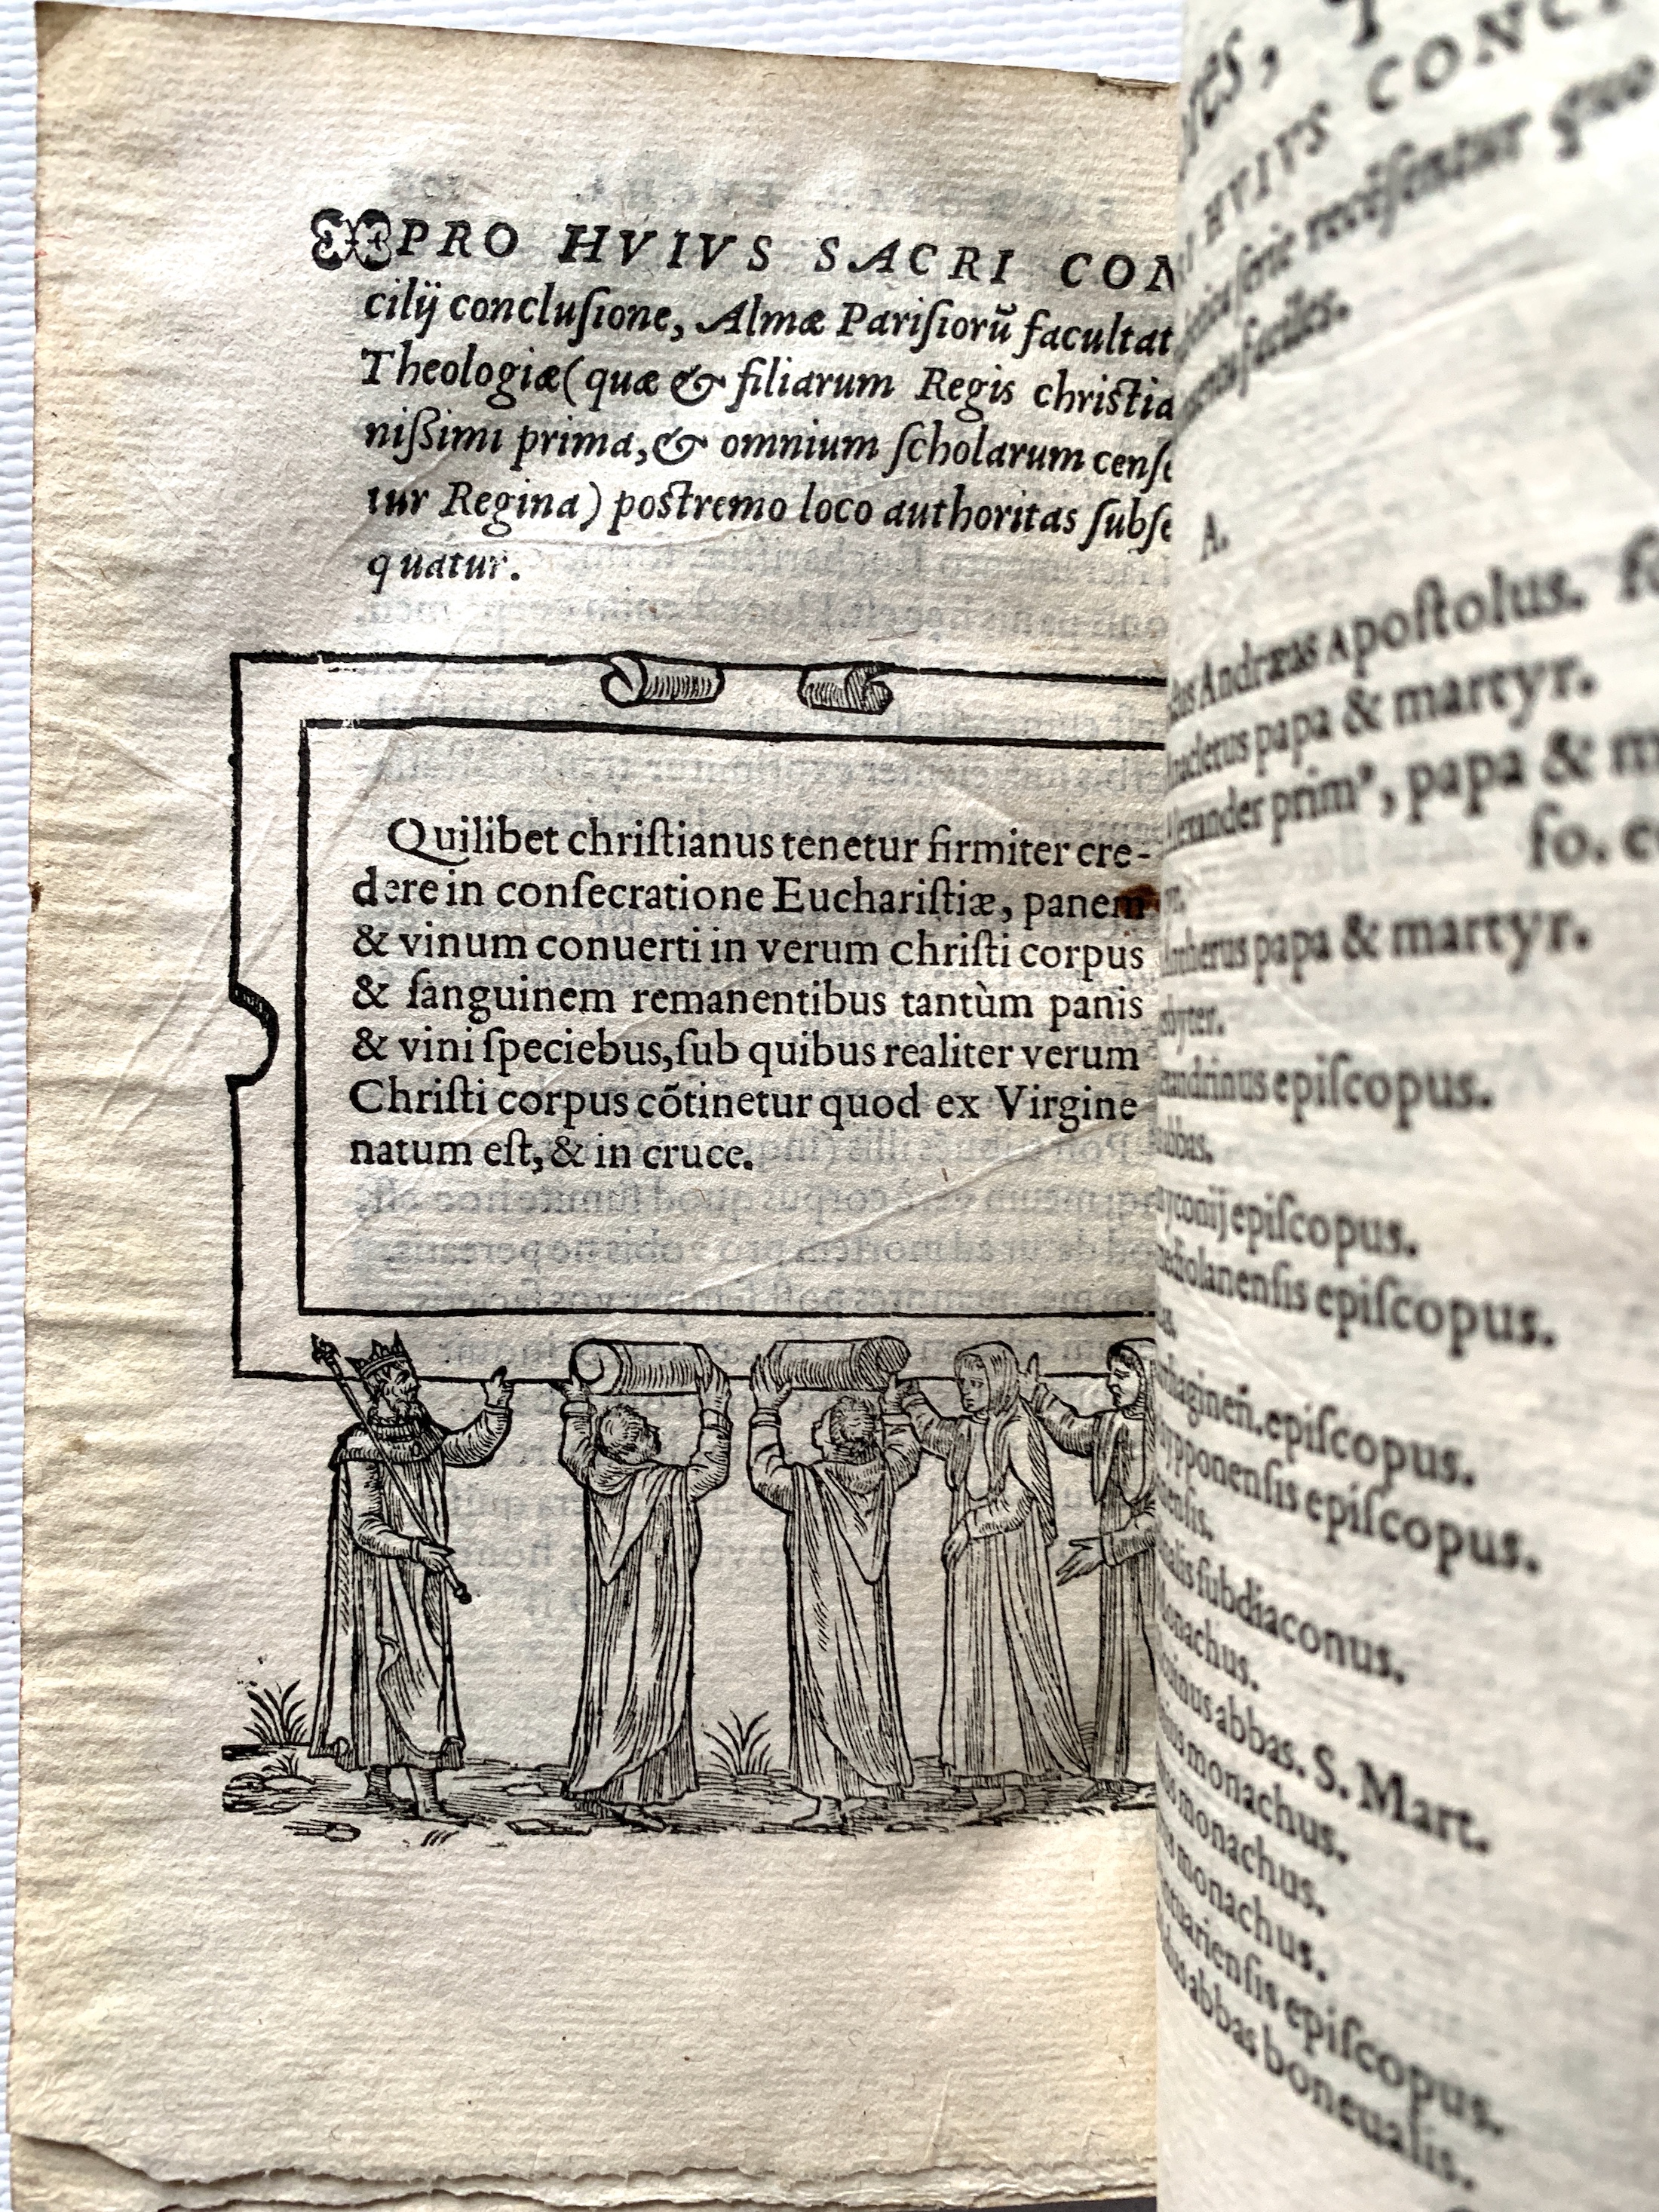 PRO HVIVS SACRI CON
cilij concluſione, Almæ Pariſiorũ facultat
Theologiæ (quæ & filiarum Regis chriſtia
niſsimi prima, & omnium ſcholarum cenſe
tur Regina) poſtremo loco authoritas ſubſe
quatur.
Quilibet chriſtianus tenetur firmiter cre-
dere in conſecratione Euchariſtiæ, panem
& vinum conuerti in verum chriſti corpus
& ſanguinem remanentibus tantùm panis
& vini ſpeciebus, ſub quibus realiter verum
Chriſti corpus cõtinetur quod ex Virgine
natum eſt, & in cruce.
HVIVS CONCI
recẽſentur quo
faciles.
A.
Andræas Apoſtolus. fo
papa & martyr.
prim⁹, papa & m
fo. e
papa & martyr.
epiſcopus.
abbas.
epiſcopus.
epiſcopus.
epiſcopus.
epiſcopus.
ſubdiaconus.
abbas. S. Mart.
monachus.
monachus.
monachus.
epiſcopus.
abbas boneualis.